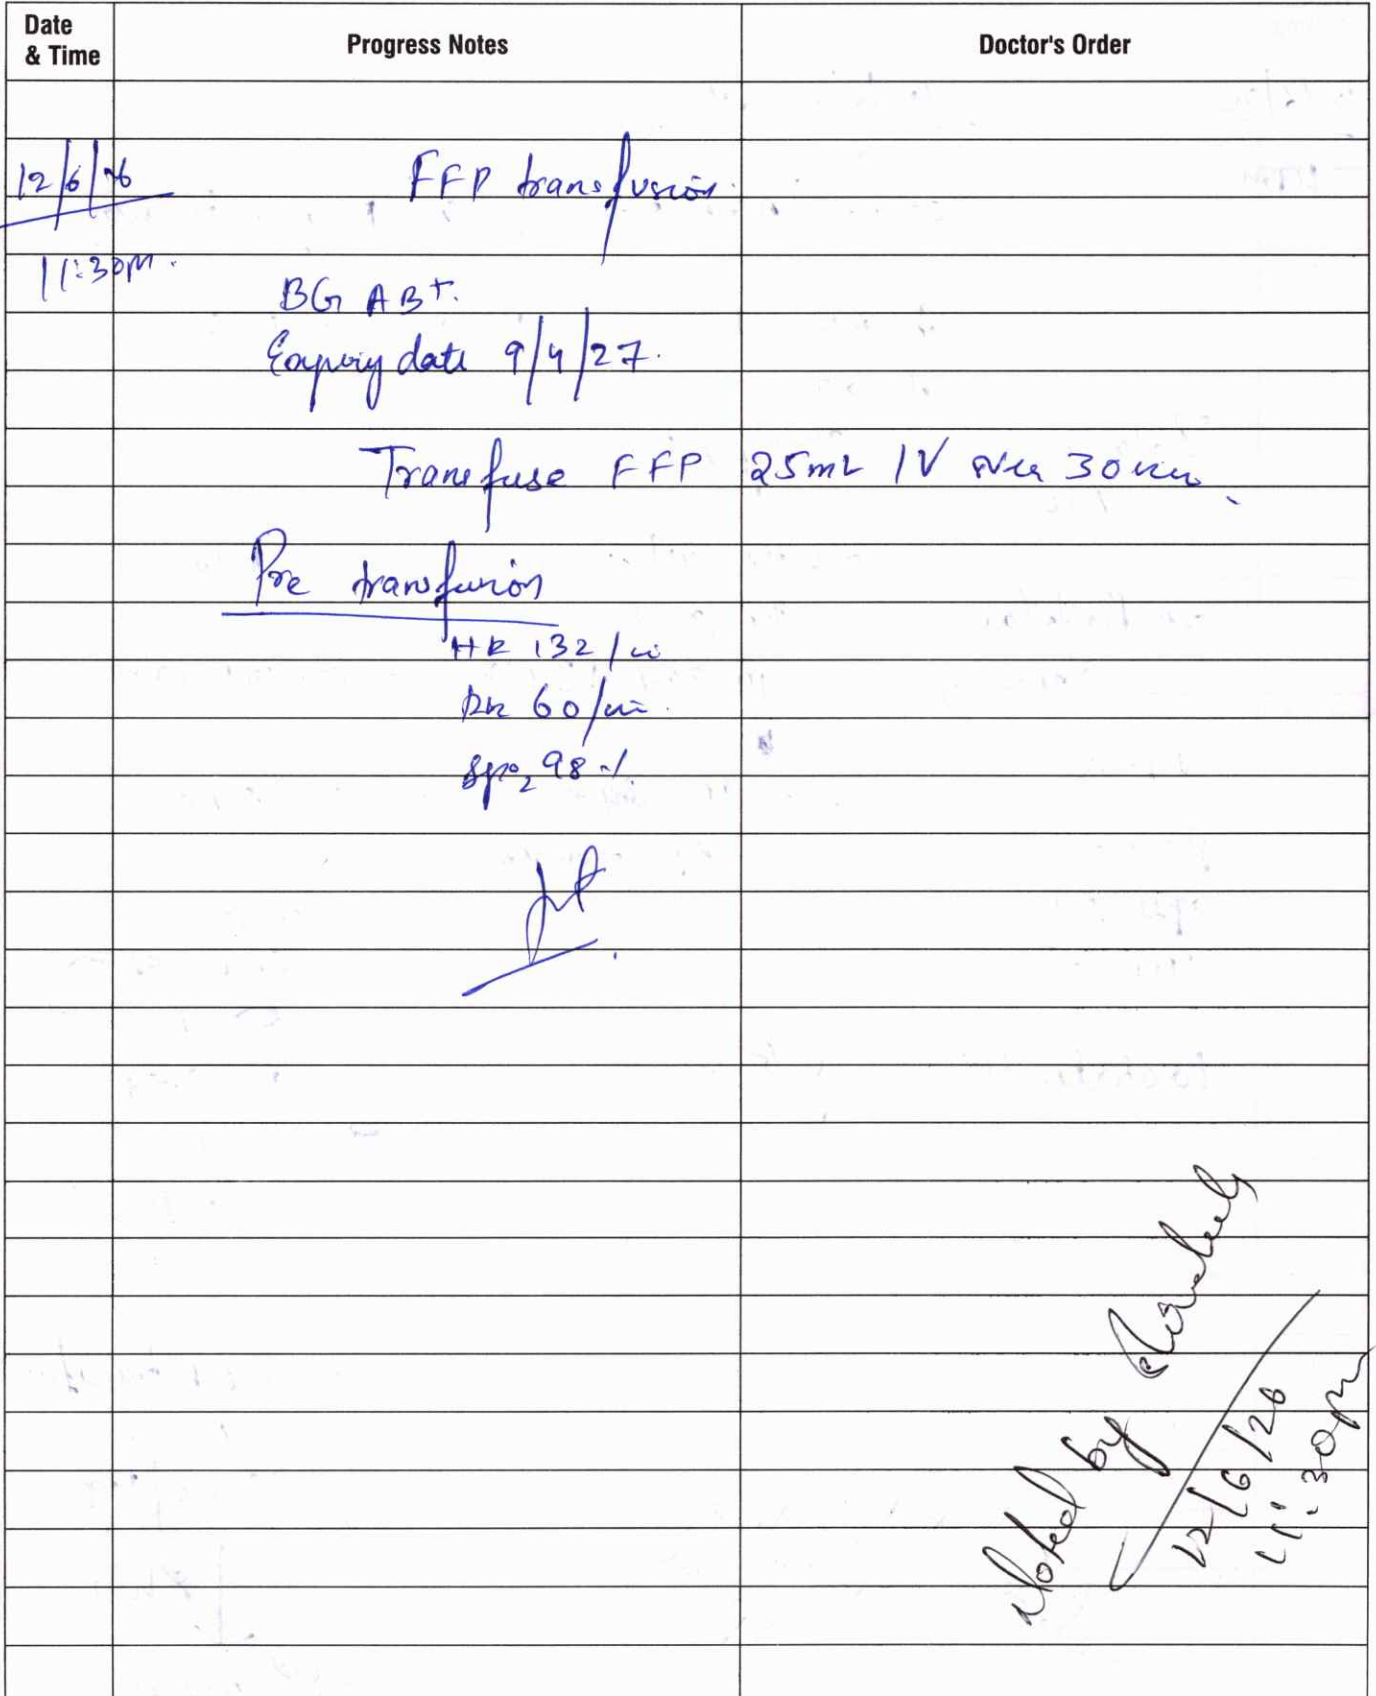 Date & Time
Progress Notes
Doctor's Order
12/6/26
FFP transfusion.
11:30pm.
BG AB+.
Expiry date 9/4/27.
Transfuse FFP 25mL IV over 30 min
Pre transfusion
HR 132/mi
RR 60/min.
SpO2 98%.
Noted by
12/6/26
11:30pm